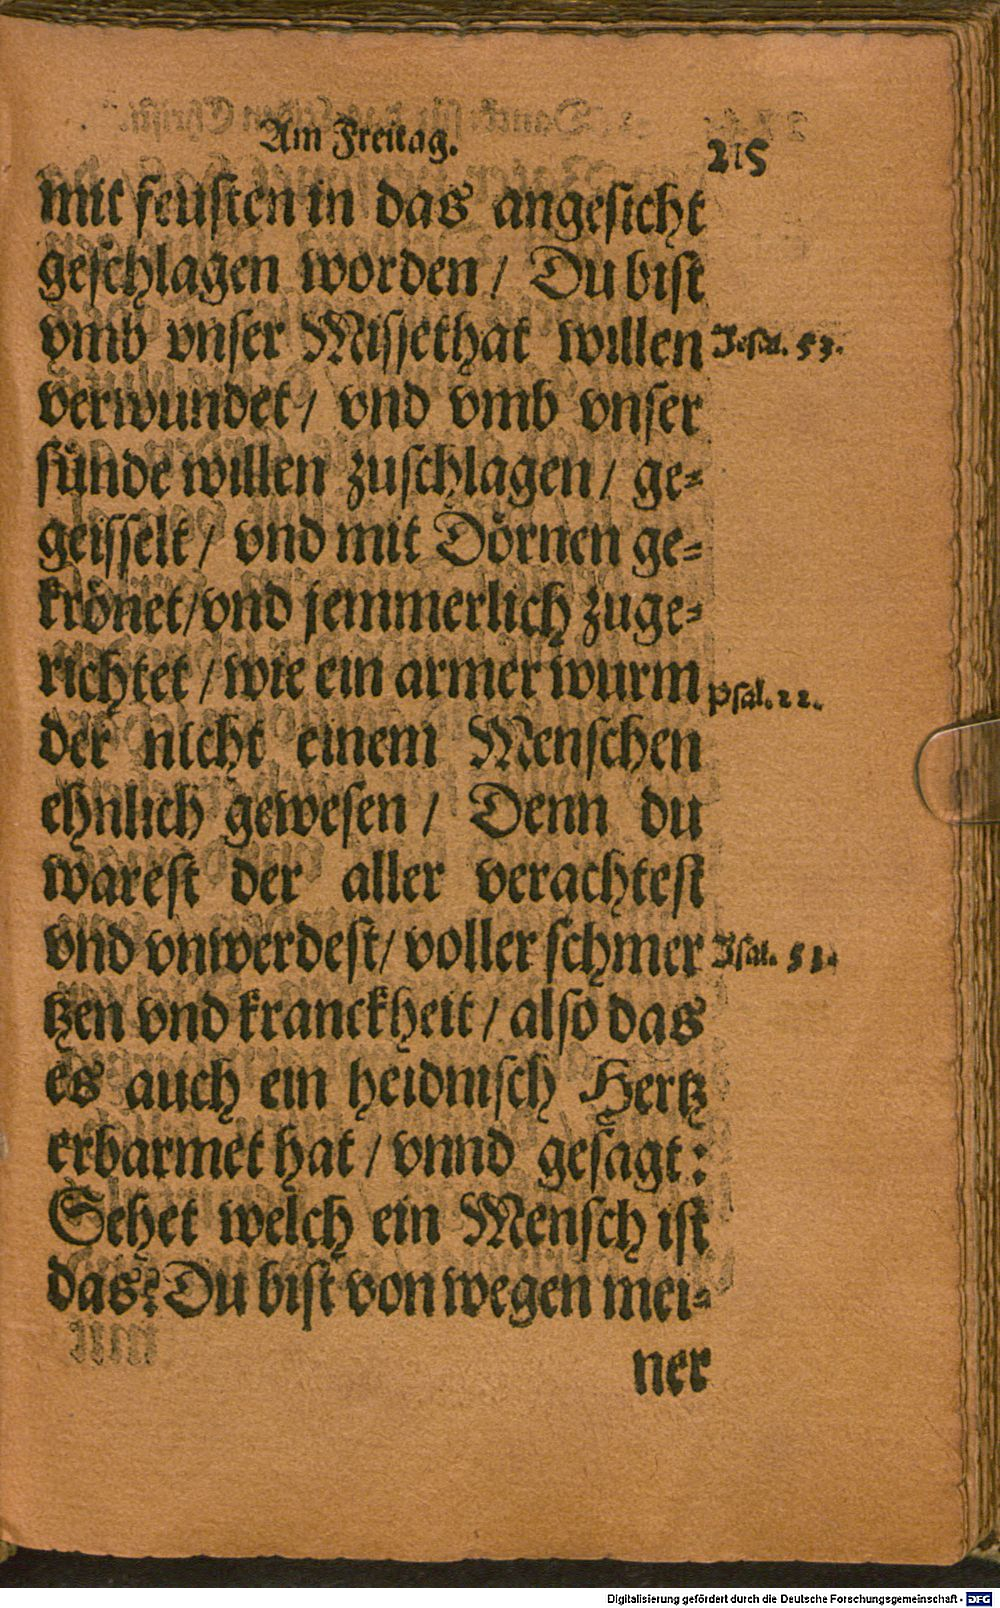 Am Freitag.
215
mit feusten in das angesicht
geschlagen worden / Du bist
vmb vnser Missethat willen
Jesai. 53.
verwundet / vnd vmb vnser
sünde willen zuschlagen / ge-
geisselt / vnd mit Dörnen ge-
krönet / vnd jemmerlich zuge-
richtet / wie ein armer wurm
Psal. 22.
der nicht einem Menschen
ehnlich gewesen / Denn du
warest der aller verachtest
vnd vnwerdest / voller schmer
tzen vnd kranckheit / also das
es auch ein heidnisch Hertz
erbarmet hat / vnnd gesagt:
Sehet welch ein Mensch ist
das? Du bist von wegen mei-
ner
Digitalisierung gefördert durch die Deutsche Forschungsgemeinschaft - DFG